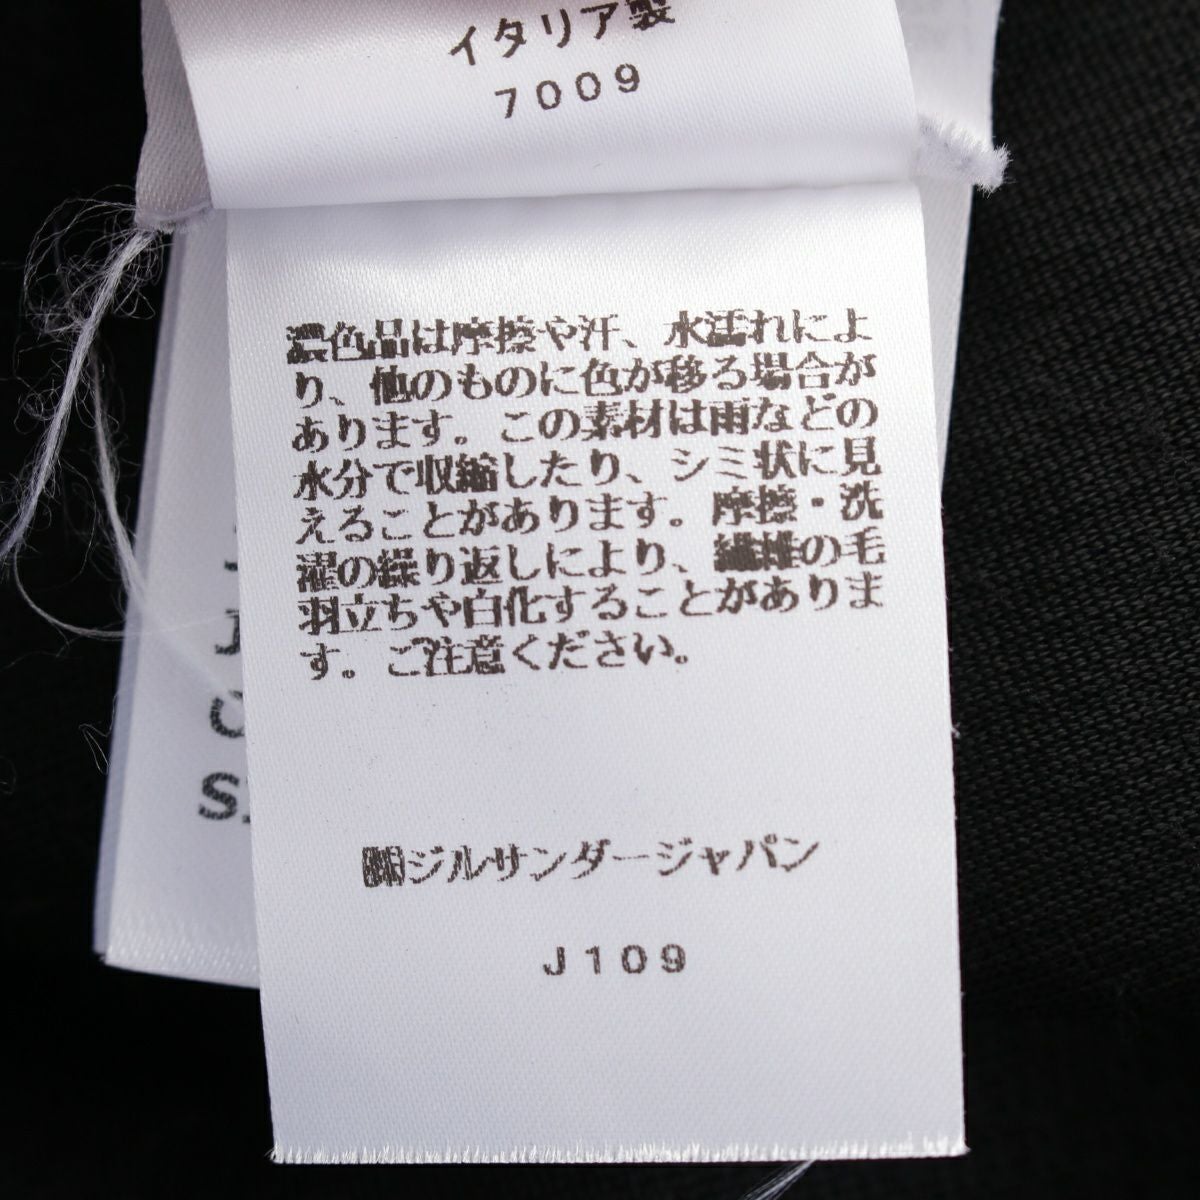 イタリア製
7009
濃色品は摩擦や汗、水濡れによ
り、他のものに色が移る場合が
あります。この素材は雨などの
水分で収縮したり、シミ状に見
えることがあります。摩擦・洗
濯の繰り返しにより、繊維の毛
羽立ちや白化することがありま
す。ご注意ください。
㈱ジルサンダージャパン
J109